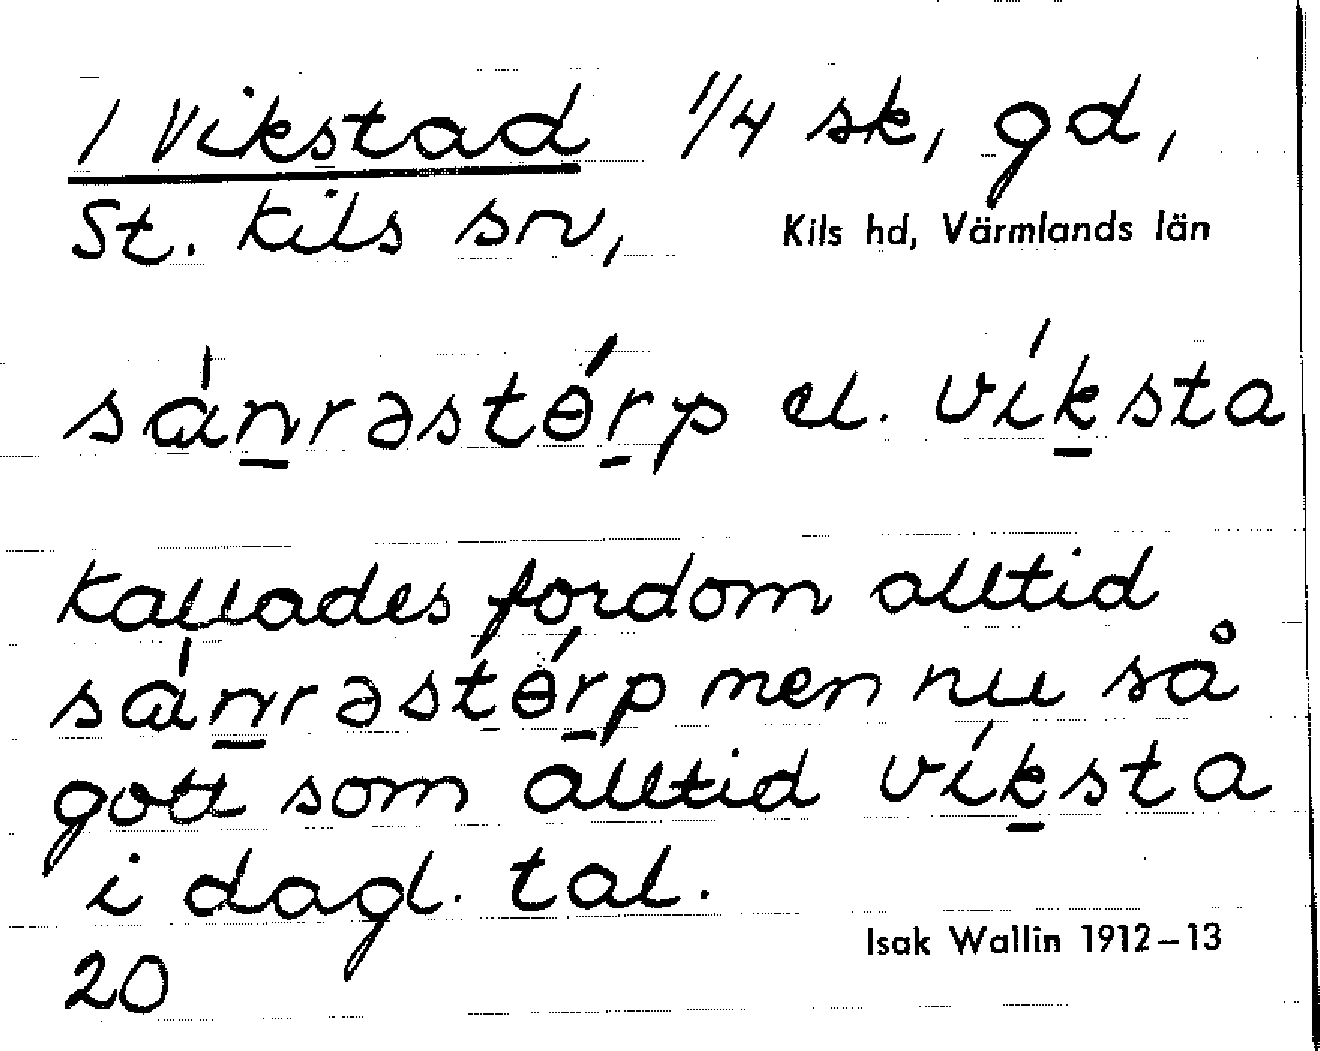 1 Vikstad 1/4 sk, gd,
St. Kils sn, Kils hd, Värmlands län
sánrəstɵ́rp el. víksta
Kallades fordom alltid
sánrəstɵ́rp men nu så
gott som alltid víksta
i dagl. tal.
Isak Wallin 1912–13
20